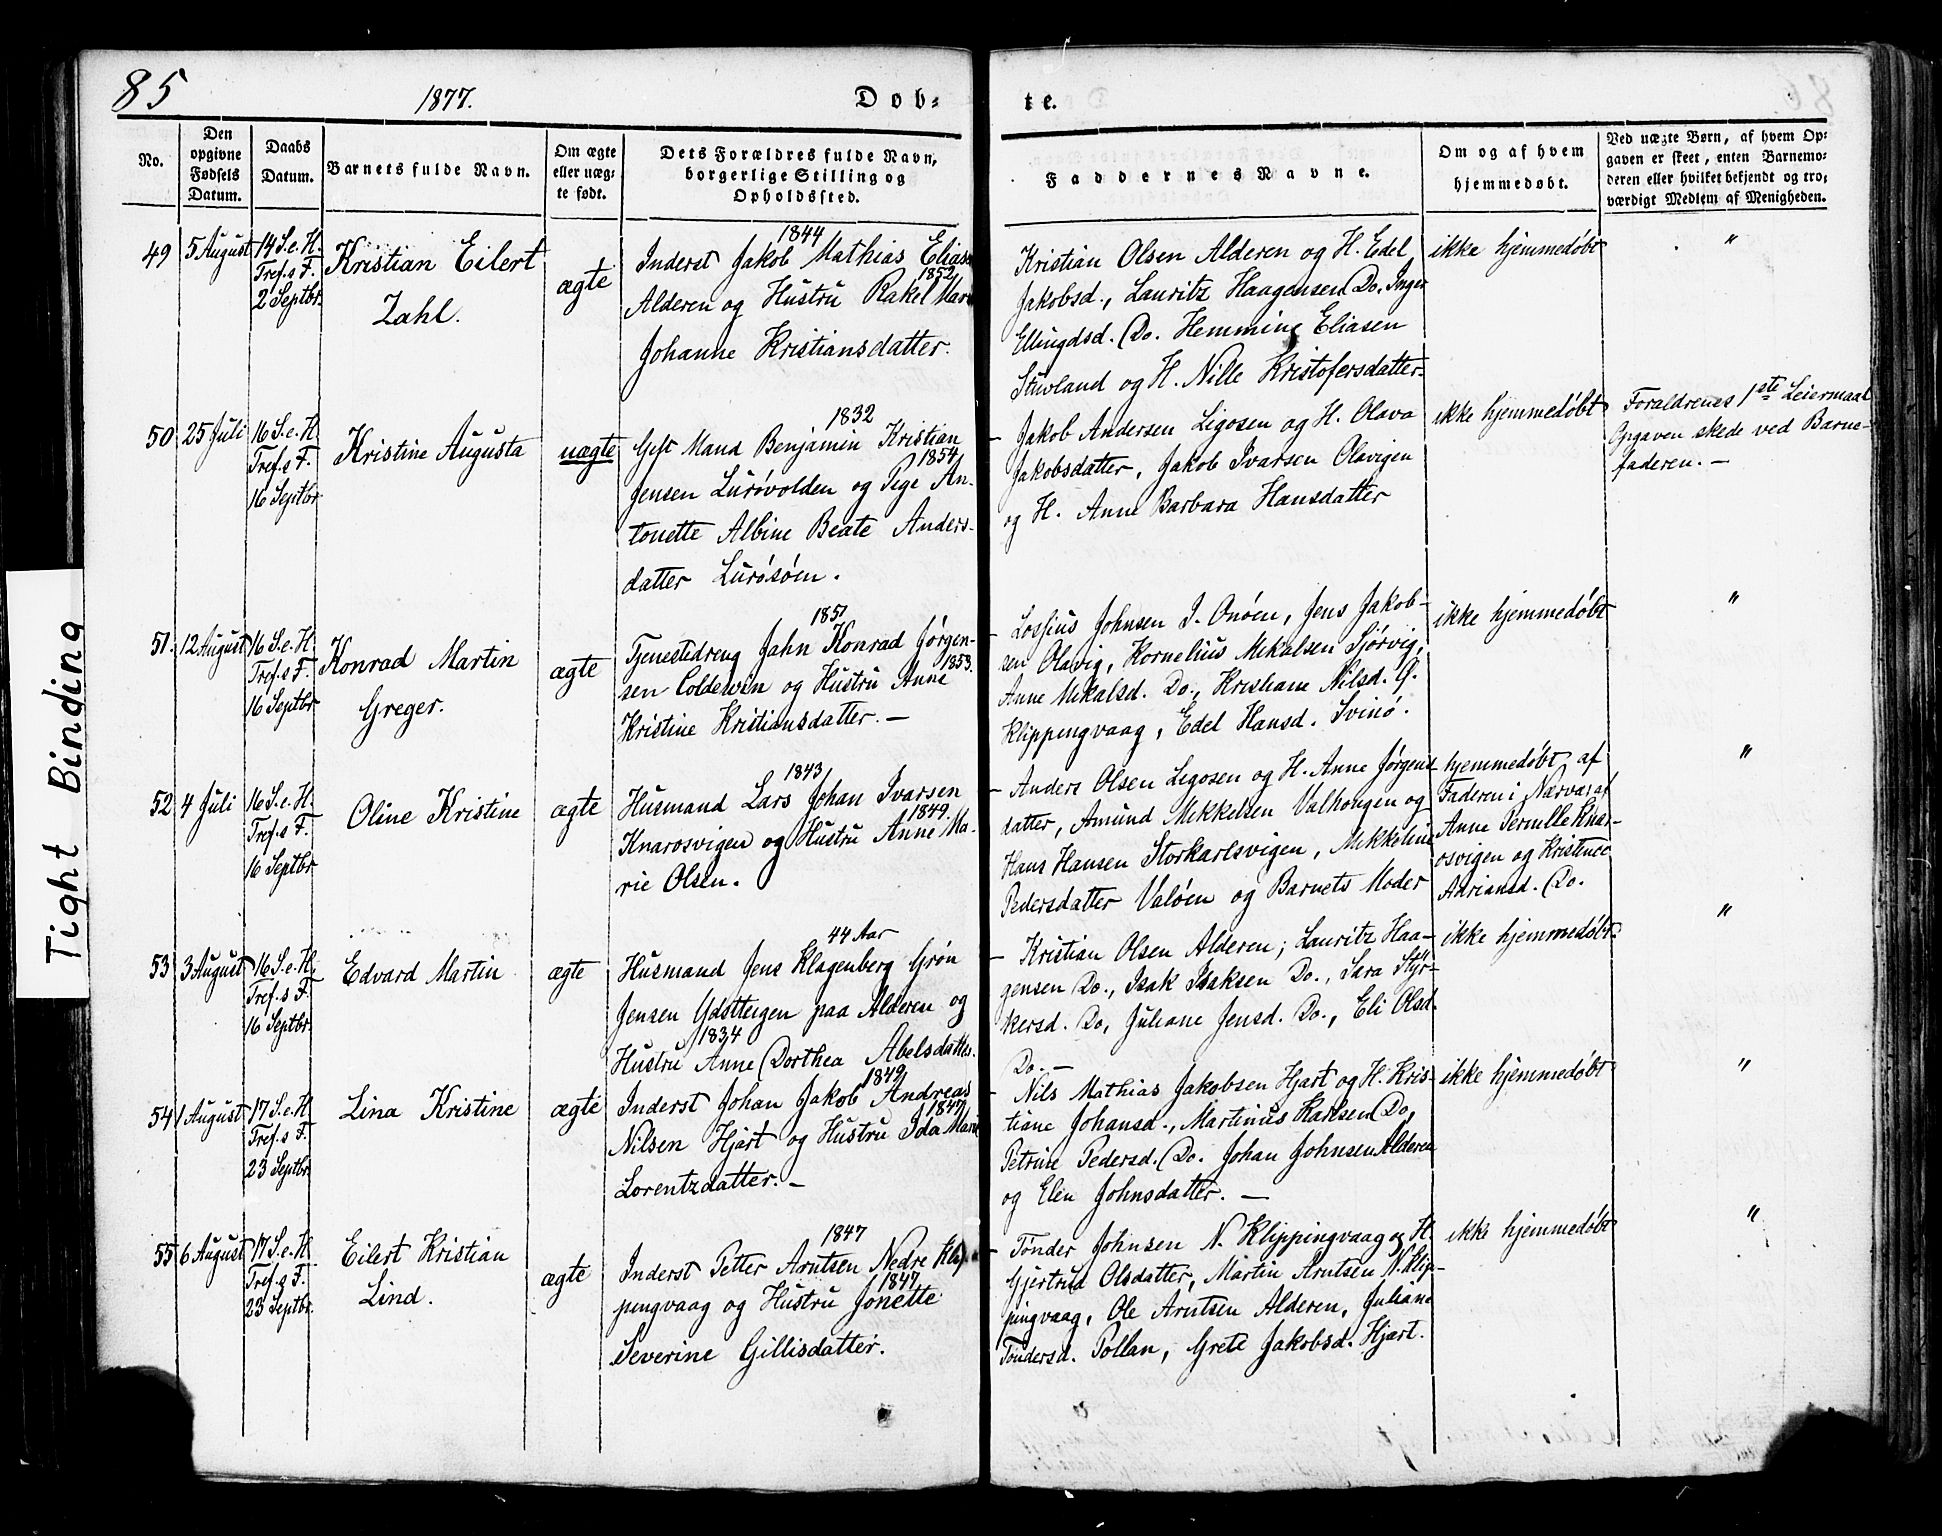 85
1877.
Døb-
te.
No.
Den opgivne Fødsels Datum.
Daabs Datum.
Barnets fulde Navn.
Om ægte eller uæg-te født.
Dets Forældres fulde Navn, borgerlige Stilling og Opholdssted.
Faddernes Navne.
Om og af hvem hjemmedøbt.
Ved uægte Børn, af hvem Op-
gaven er skeet, enten Barnemo-
deren eller hvilket bekjendt og tro-
værdigt Medlem af Menigheden.
49 5 August
14 S. e. H.
Tref. s F.
2 Septbr.
Kristian Eilert
Zahl.
ægte
1844
Inderst Jakob Mathias Elias
1852
Alderen og Hustru Rakel Mar
Johanne Kristiansdatter.
Kristian Olsen Alderen og H. Edel
Jakobsd., Lauritz Haagensen Do. Inger
Ellingdsd. Do. Hemming Eliasen
Stuvland og H. Nille Kristofersdatter.
ikke hjemmedøbt
"
50 25 Juli
16 S. e. H.
Tref. s F.
16 Septbr
Kristine Augusta
uægte
1832
Gift Mand Benjamin Kristian
1854
Jensen Lurøvolden og Pige An-
tonette Albine Beate Anders-
datter Lurøsøen.
- Jakob Andersen Ligosen og H. Olava
Jakobsdatter, Jakob Ivarsen Olavigen
og H. Anne Barbara Hansdatter
ikke hjemmedøbt
Foraldrenes 1ste Leiermaal
Opgaven skede ved Barne-
faderen. -
51. 12 August
16 S. e. H.
Tref. s F.
16 Septbr
Konrad Martin
Greger.
ægte
1851
Tjenestedreng Jahn Konrad Jørgen-
1853.
sen Coldewin og Hustru Anne
Kristine Kristiansdatter. -
- Lossius Johnsen I. Onøen, Jens Jakob-
sen Olavig, Kornelius Mikalsen Sjørvig,
Anne Mikalsd. Do., Kristiane Nilsd. Ø.
Klippingvaag, Edel Hansd. Svinø.
ikke hjemmedøbt
"
52 4 Juli
16 S. e. H.
Tref. s F.
16 Septbr
Oline Kristine
ægte
1843
Husmand Lars Johan Ivarsen
1849.
Knarosvigen og Hustru Anne Ma-
rie Olsen.
- Anders Olsen Ligosen og H. Anne Jørgens
datter, Amund Mikkelsen Valhongen og
Hans Hansen Storkarlsvigen, Mikkeline
Pedersdatter Valøen og Barnets Moder
hjemmedøbt af
Faderen i Nærvar af
Anne Pernille Knar-
osvigen og Kristence
Adriansd. Do.
"
53 3 August
16 S. e. H.
Tref. s F.
16 Septbr.
Edvard Martin
ægte
44 Aar
Husmand Jens Klagenberg Grøn
Jensen Ydstteigen paa Alderen og
1834
Hustru Anne Dorthea Abelsdatter.
- Kristian Olsen Alderen; Lauritz Haa-
gensen Do., Isak Isaksen Do., Sara Styr-
kersd. Do, Juliane Jensd. Do., Eli Olsd.
Do. -
ikke hjemmedøbt.
"
54 1 August
17 S. e. H
Tref. s F.
23 Septbr
Lina Kristine
ægte
1849
Inderst Johan Jakob Andreas
1847
Nilsen Hjart og Hustru Ida Mari
Lorentzdatter. -
- Nils Mathias Jakobsen Hjart og H. Kris-
tiane Johansd., Martinus Karlsen Do,
Petrine Pedersd. Do. Johan Johnsen Alderen
og Elen Johnsdatter. -
ikke hjemmedøbt
"
55 6 August
17 S. e. H
Tref. s F.
23 Septbr.
Eilert Kristian
Lind.
ægte
1847
Inderst Petter Arntsen Nedre Klip
1847
pingvaag og Hustru Jonette
Severine Gillisdatter.
- Tønder Johnsen N. Klippingvaag og H.
Gjertrud Olsdatter, Martin Arntsen N. Klip-
pingvaag, Ole Arntsen Alderen, Juliane
Tøndersd. Pollan, Grete Jakobsd. Hjart.
ikke hjemmedøbt
"
Tight Binding